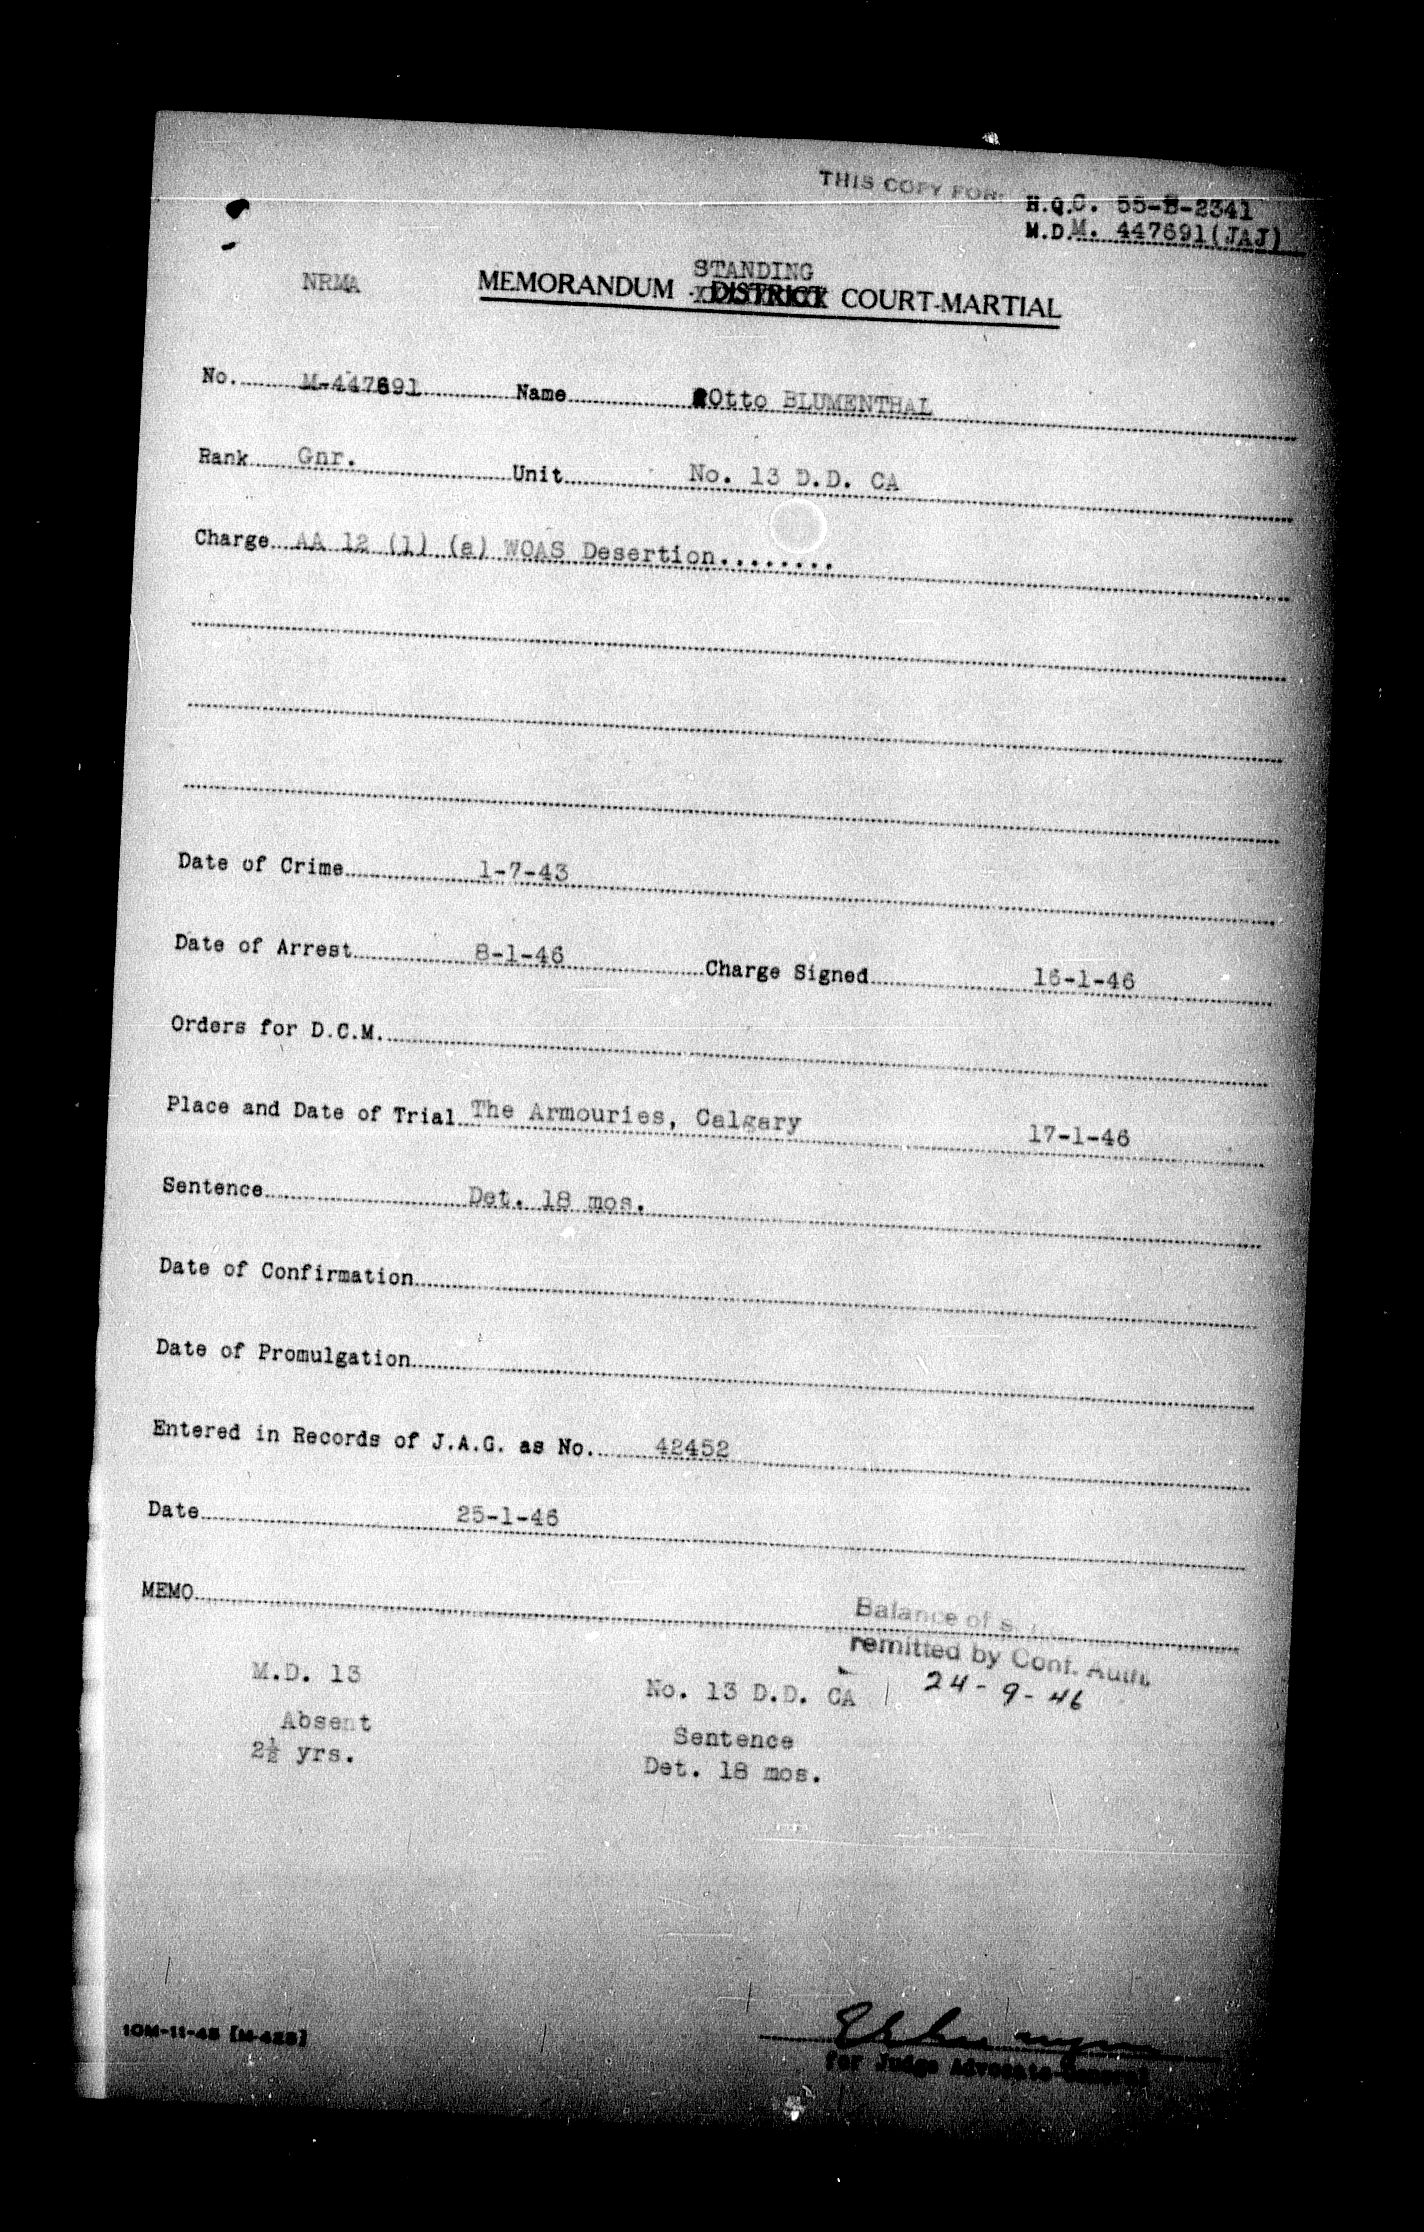 THIS COPY FOR:
H.Q.C. 55-B-2341
M.D.M. 447691(JAJ)
STANDING
NRMA MEMORANDUM DISTRICT COURT-MARTIAL
No. M-447691 Name Otto BLUMENTHAL
Rank Gnr. Unit No. 13 D.D. CA
Charge AA 12 (1) (a) WOAS Desertion........
Date of Crime 1-7-43
Date of Arrest 8-1-46 Charge Signed 16-1-46
Orders for D.C.M.
Place and Date of Trial The Armouries, Calgary 17-1-46
Sentence Det. 18 mos.
Date of Confirmation
Date of Promulgation
Entered in Records of J.A.G. as No. 42452
Date 25-1-46
MEMO
Balance of
remitted by Conf. Auth.
24-9-46
M.D. 13 No. 13 D.D. CA
Absent Sentence
2½ yrs. Det. 18 mos.
10M-11-45 [M-425]
for Judge Advocate-General